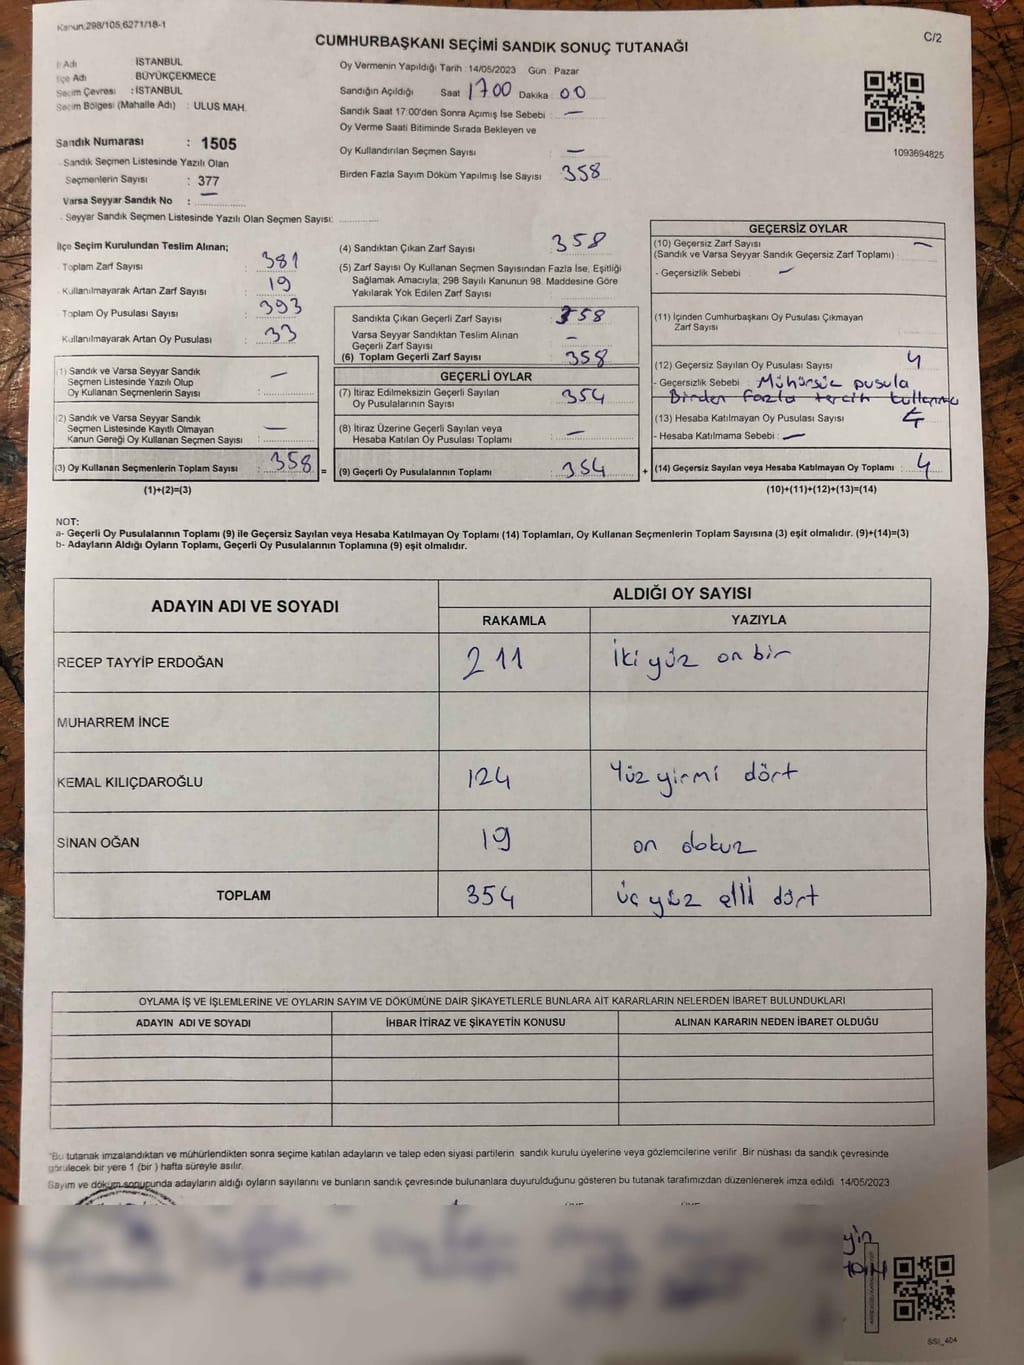 Kanun,298/105,6271/18-1
C/2
CUMHURBAŞKANI SEÇİMİ SANDIK SONUÇ TUTANAĞI
İl Adı İSTANBUL
İlçe Adı BÜYÜKÇEKMECE
Seçim Çevresi : İSTANBUL
Seçim Bölgesi (Mahalle Adı) : ULUS MAH.
Oy Vermenin Yapıldığı Tarih : 14/05/2023 Gün : Pazar
Sandığın Açıldığı Saat 1700 Dakika : 00
Sandık Saat 17:00'den Sonra Açımış İse Sebebi : —
Oy Verme Saati Bitiminde Sırada Bekleyen ve
Oy Kullandırılan Seçmen Sayısı : —
Birden Fazla Sayım Döküm Yapılmış İse Sayısı 358
1093694825
Sandık Numarası : 1505
Sandık Seçmen Listesinde Yazılı Olan
Seçmenlerin Sayısı : 377
Varsa Seyyar Sandık No : —
Seyyar Sandık Seçmen Listesinde Yazılı Olan Seçmen Sayısı:
İlçe Seçim Kurulundan Teslim Alınan;
Toplam Zarf Sayısı : 381
Kullanılmayarak Artan Zarf Sayısı : 19
Toplam Oy Pusulası Sayısı : 393
Kullanılmayarak Artan Oy Pusulası : 33
(1) Sandık ve Varsa Seyyar Sandık
Seçmen Listesinde Yazılı Olup
Oy Kullanan Seçmenlerin Sayısı : —
(2) Sandık ve Varsa Seyyar Sandık
Seçmen Listesinde Kayıtlı Olmayan
Kanun Gereği Oy Kullanan Seçmen Sayısı : —
(3) Oy Kullanan Seçmenlerin Toplam Sayısı : 358 =
(1)+(2)=(3)
(4) Sandıktan Çıkan Zarf Sayısı : 358
(5) Zarf Sayısı Oy Kullanan Seçmen Sayısından Fazla İse, Eşitliği
Sağlamak Amacıyla; 298 Sayılı Kanunun 98. Maddesine Göre
Yakılarak Yok Edilen Zarf Sayısı :
Sandıkta Çıkan Geçerli Zarf Sayısı : 358
Varsa Seyyar Sandıktan Teslim Alınan
Geçerli Zarf Sayısı : —
(6) Toplam Geçerli Zarf Sayısı : 358
GEÇERLİ OYLAR
(7) İtiraz Edilmeksizin Geçerli Sayılan
Oy Pusulalarının Sayısı : 354
(8) İtiraz Üzerine Geçerli Sayılan veya
Hesaba Katılan Oy Pusulası Toplamı : —
(9) Geçerli Oy Pusulalarının Toplamı : 354 +
GEÇERSİZ OYLAR
(10) Geçersiz Zarf Sayısı
(Sandık ve Varsa Seyyar Sandık Geçersiz Zarf Toplamı) : —
- Geçersizlik Sebebi : —
(11) İçinden Cumhurbaşkanı Oy Pusulası Çıkmayan
Zarf Sayısı
(12) Geçersiz Sayılan Oy Pusulası Sayısı : 4
- Geçersizlik Sebebi : Mühürsüz pusula
Birden fazla tercih
(13) Hesaba Katılmayan Oy Pusulası Sayısı :
- Hesaba Katılmama Sebebi : —
(14) Geçersiz Sayılan veya Hesaba Katılmayan Oy Toplamı : 4
(10)+(11)+(12)+(13)=(14)
NOT:
a- Geçerli Oy Pusulalarının Toplamı (9) ile Geçersiz Sayılan veya Hesaba Katılmayan Oy Toplamı (14) Toplamları, Oy Kullanan Seçmenlerin Toplam Sayısına (3) eşit olmalıdır. (9)+(14)=(3)
b- Adayların Aldığı Oyların Toplamı, Geçerli Oy Pusulalarının Toplamına (9) eşit olmalıdır.
ADAYIN ADI VE SOYADI
ALDIĞI OY SAYISI
RAKAMLA YAZIYLA
RECEP TAYYİP ERDOĞAN 211 İki yüz on bir
MUHARREM İNCE
KEMAL KILIÇDAROĞLU 124 Yüz yirmi dört
SİNAN OĞAN 19 on dokuz
TOPLAM 354 üç yüz elli dört
OYLAMA İŞ VE İŞLEMLERİNE VE OYLARIN SAYIM VE DÖKÜMÜNE DAİR ŞİKAYETLERLE BUNLARA AİT KARARLARIN NELERDEN İBARET BULUNDUKLARI
ADAYIN ADI VE SOYADI İHBAR İTİRAZ VE ŞİKAYETİN KONUSU ALINAN KARARIN NEDEN İBARET OLDUĞU
*Bu tutanak imzalandıktan ve mühürlendikten sonra seçime katılan adayların ve talep eden siyasi partilerin sandık kurulu üyelerine veya gözlemcilerine verilir. Bir nüshası da sandık çevresinde
görülecek bir yere 1 (bir ) hafta süreyle asılır.
Sayım ve döküm sonucunda adayların aldığı oyların sayılarını ve bunların sandık çevresinde bulunanlara duyurulduğunu gösteren bu tutanak tarafımızdan düzenlenerek imza edildi. 14/05/2023
SSI_404